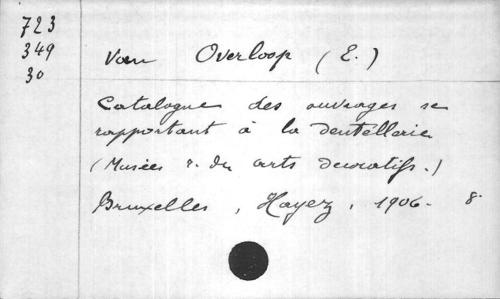 723
349
30
Van Overloop (E.)
Catalogue des ouvrages se
rapportant à la dentellerie
(Musées r. du arts décoratifs.)
Bruxelles, Hayez, 1906. 8.